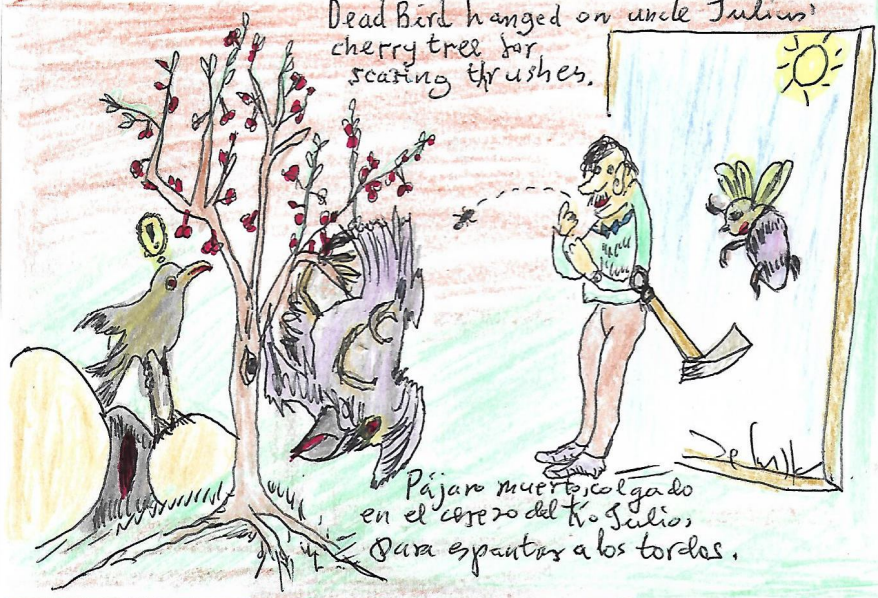 Dead Bird hanged on uncle Julius'
cherry tree for
scaring thrushes.
!
Pájaro muerto, colgado
en el cerezo del tío Julio,
para espantar a los tordos.